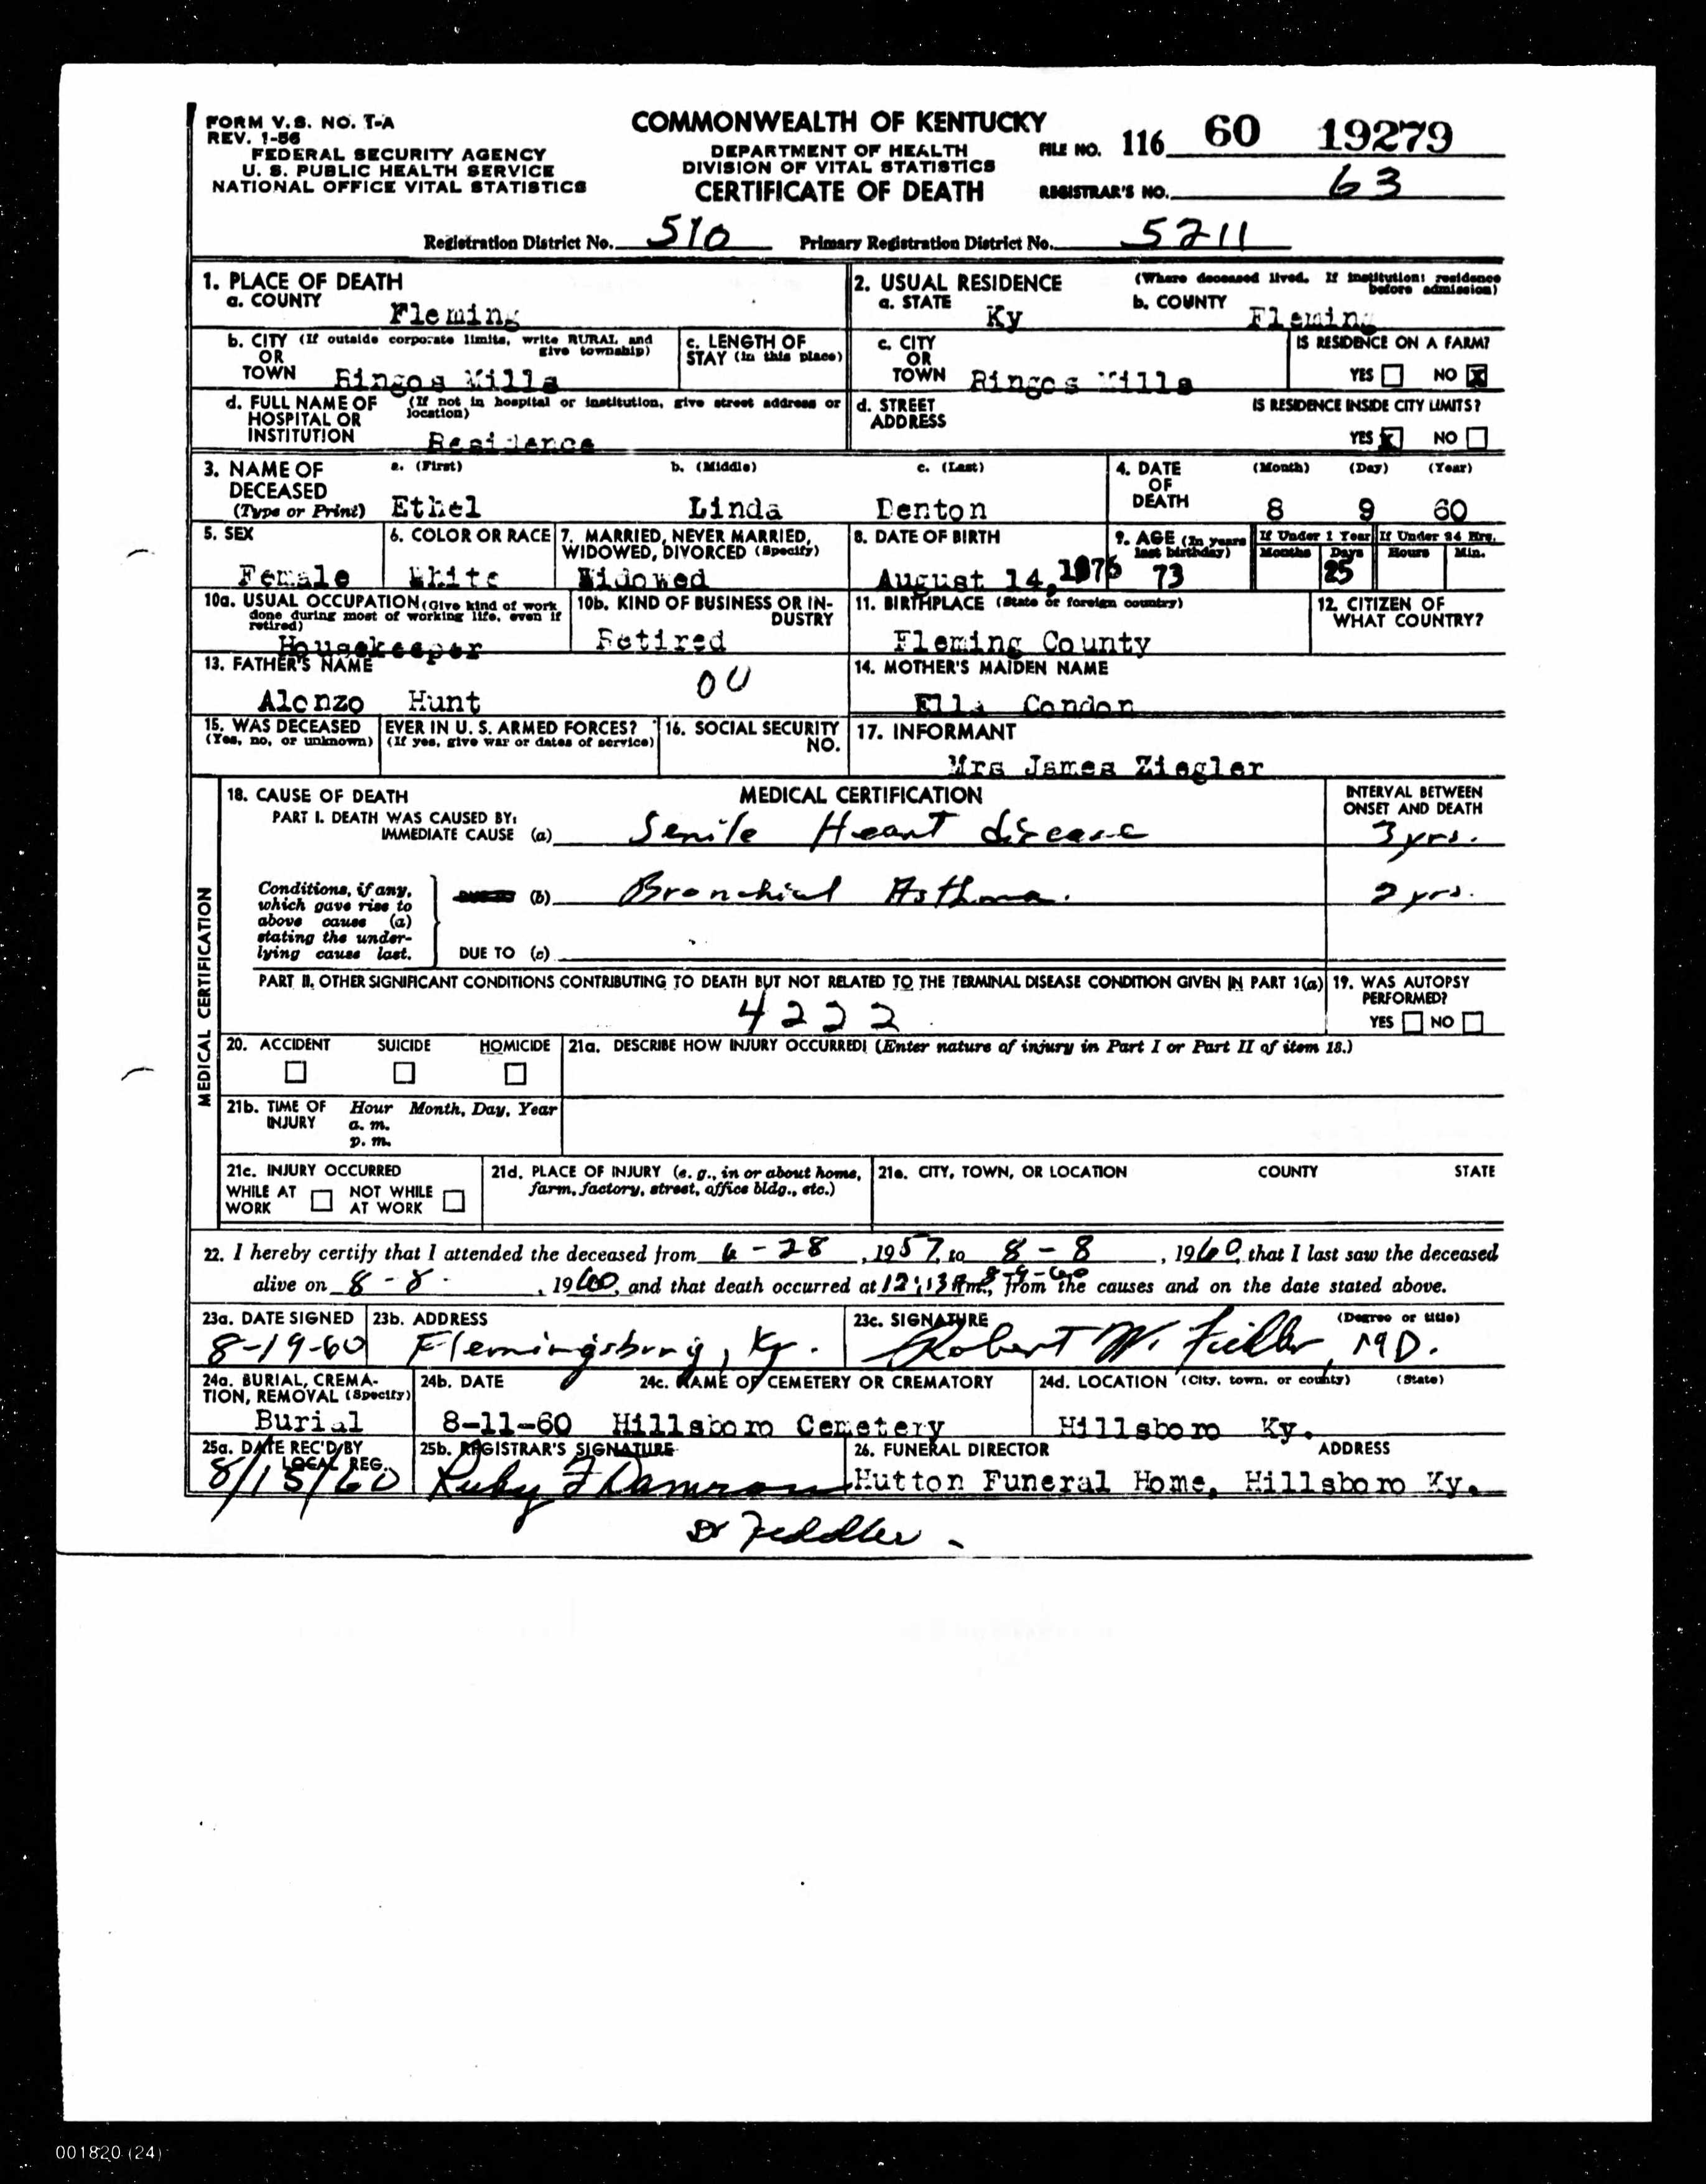 FORM V.S. NO. T-A
REV. 1-56
FEDERAL SECURITY AGENCY
U. S. PUBLIC HEALTH SERVICE
NATIONAL OFFICE VITAL STATISTICS
COMMONWEALTH OF KENTUCKY
DEPARTMENT OF HEALTH
DIVISION OF VITAL STATISTICS
CERTIFICATE OF DEATH
FILE NO. 116 60 19279
REGISTRAR'S NO. 63
Registration District No. 510 Primary Registration District No. 5211
1. PLACE OF DEATH
a. COUNTY Fleming
2. USUAL RESIDENCE (Where deceased lived. If institution: residence before admission)
a. STATE Ky b. COUNTY Fleming
b. CITY (If outside corporate limits, write RURAL and give township)
OR
TOWN Ringos Mills
c. LENGTH OF STAY (in this place)
c. CITY
OR
TOWN Ringos Mills
IS RESIDENCE ON A FARM?
YES NO X
d. FULL NAME OF HOSPITAL OR INSTITUTION (If not in hospital or institution, give street address or location)
Residence
d. STREET ADDRESS
IS RESIDENCE INSIDE CITY LIMITS?
YES X NO
3. NAME OF DECEASED (Type or Print)
a. (First) b. (Middle) c. (Last)
Ethel Linda Denton
4. DATE OF DEATH (Month) (Day) (Year)
8 9 60
5. SEX
Female
6. COLOR OR RACE
White
7. MARRIED, NEVER MARRIED, WIDOWED, DIVORCED (Specify)
Widowed
8. DATE OF BIRTH
August 14,
9. AGE (In years last birthday)
73
If Under 1 Year If Under 24 Hrs.
Months Days Hours Min.
25
10a. USUAL OCCUPATION (Give kind of work done during most of working life, even if retired)
Housekeeper
10b. KIND OF BUSINESS OR INDUSTRY
Retired
11. BIRTHPLACE (State or foreign country)
Fleming County
12. CITIZEN OF WHAT COUNTRY?
13. FATHER'S NAME
Alonzo Hunt
OU
14. MOTHER'S MAIDEN NAME
Ella Condon
15. WAS DECEASED EVER IN U. S. ARMED FORCES?
(Yes, no, or unknown) (If yes, give war or dates of service)
16. SOCIAL SECURITY NO.
17. INFORMANT
Mrs James Ziegler
MEDICAL CERTIFICATION
18. CAUSE OF DEATH MEDICAL CERTIFICATION
INTERVAL BETWEEN ONSET AND DEATH
PART I. DEATH WAS CAUSED BY:
IMMEDIATE CAUSE (a) Senile Heart disease 3 yrs.
Conditions, if any, which gave rise to above cause (a) stating the underlying cause last.
DUE TO (b) Bronchial Asthma. 2 yrs.
DUE TO (c)
PART II. OTHER SIGNIFICANT CONDITIONS CONTRIBUTING TO DEATH BUT NOT RELATED TO THE TERMINAL DISEASE CONDITION GIVEN IN PART 1(a)
4222
19. WAS AUTOPSY PERFORMED?
YES NO
20. ACCIDENT SUICIDE HOMICIDE
21a. DESCRIBE HOW INJURY OCCURRED! (Enter nature of injury in Part I or Part II of item 18.)
21b. TIME OF INJURY Hour Month, Day, Year
a. m.
p. m.
21c. INJURY OCCURRED
WHILE AT WORK NOT WHILE AT WORK
21d. PLACE OF INJURY (e. g., in or about home, farm, factory, street, office bldg., etc.)
21e. CITY, TOWN, OR LOCATION COUNTY STATE
22. I hereby certify that I attended the deceased from 6-28, 1957, to 8-8, 1960, that I last saw the deceased
alive on 8-8-, 1960, and that death occurred at 12:13 Am., 8-9-60 from the causes and on the date stated above.
23a. DATE SIGNED
8-19-60
23b. ADDRESS
Flemingsburg, Ky.
23c. SIGNATURE (Degree or title)
Robert W. Fidler, MD.
24a. BURIAL, CREMATION, REMOVAL (Specify)
Burial
24b. DATE
8-11-60
24c. NAME OF CEMETERY OR CREMATORY
Hillsboro Cemetery
24d. LOCATION (City, town, or county) (State)
Hillsboro Ky.
25a. DATE REC'D BY LOCAL REG.
8/15/60
25b. REGISTRAR'S SIGNATURE
Ruby F Damron
26. FUNERAL DIRECTOR ADDRESS
Hutton Funeral Home, Hillsboro Ky.
Dr Feddler -
001820 (24)